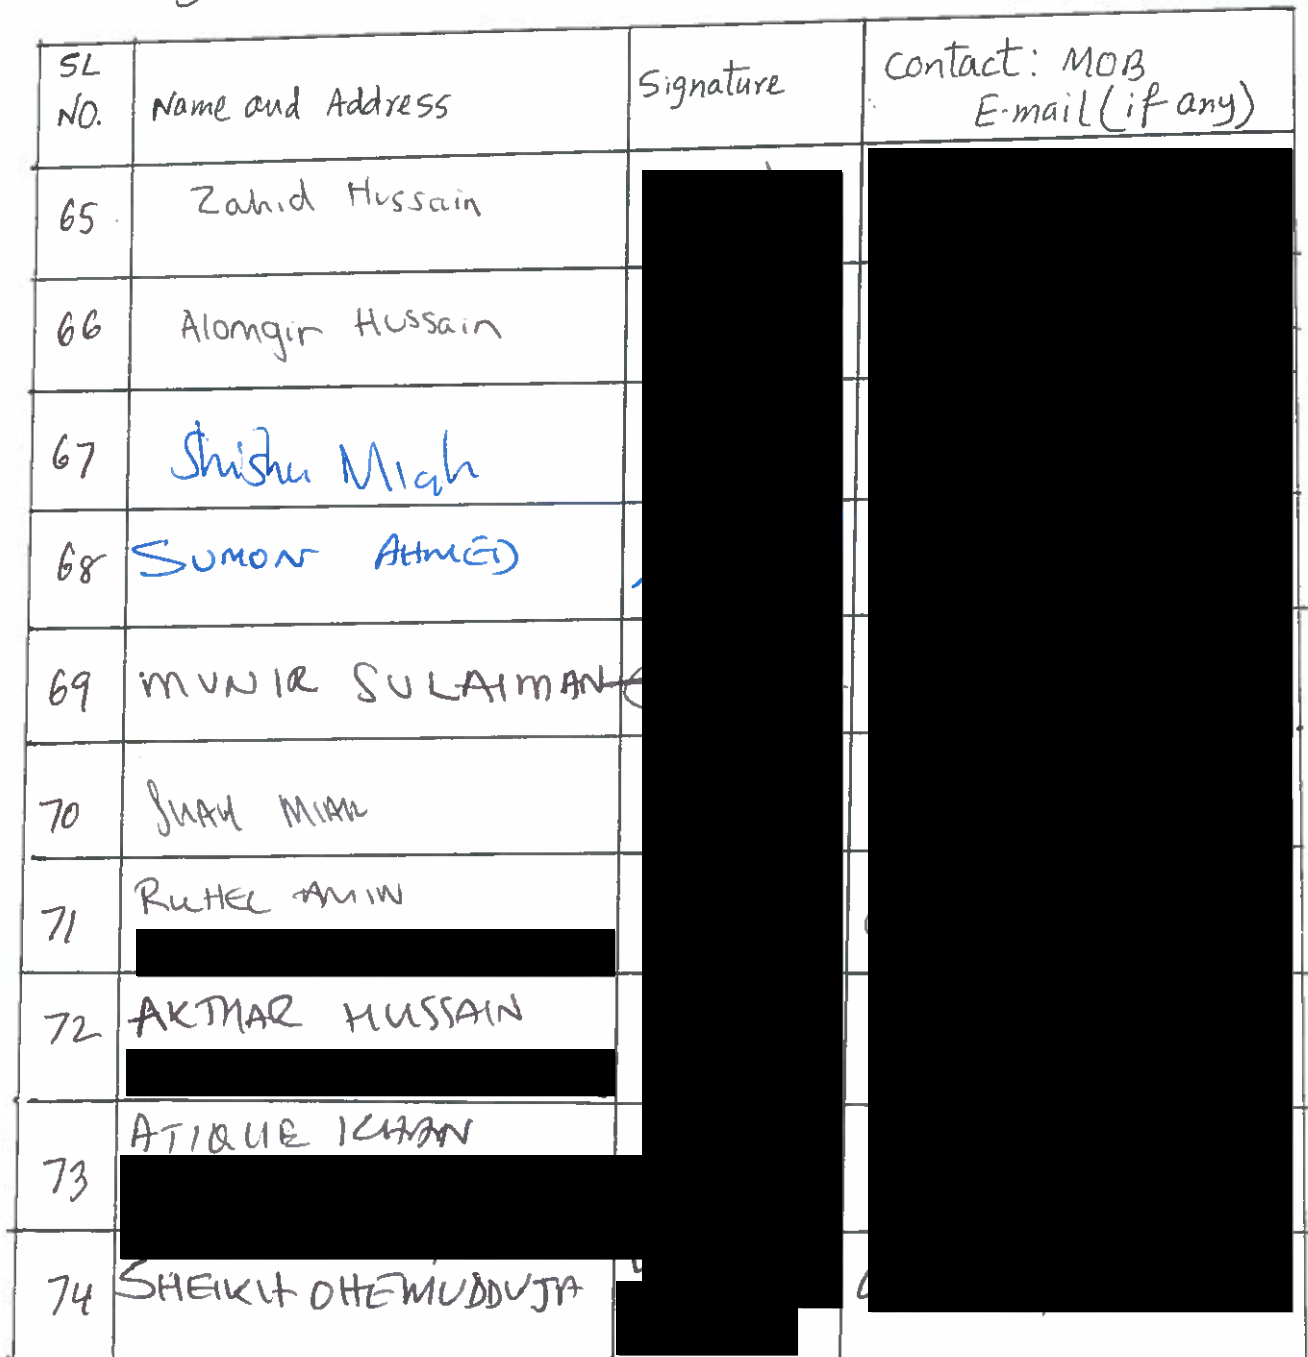 SL NO.
Name and Address
Signature
Contact: MOB
E-mail (if any)
65 Zahid Hussain
66 Alomgir Hussain
67 Shishu Miah
68 SUMON AHMED
69 MUNIR SULAIMAN
70 SHAH MIAH
71 RUHEL AMIN
72 AKTHAR HUSSAIN
73 ATIQUE KHAN
74 SHEIKH OHEMUDDUJA